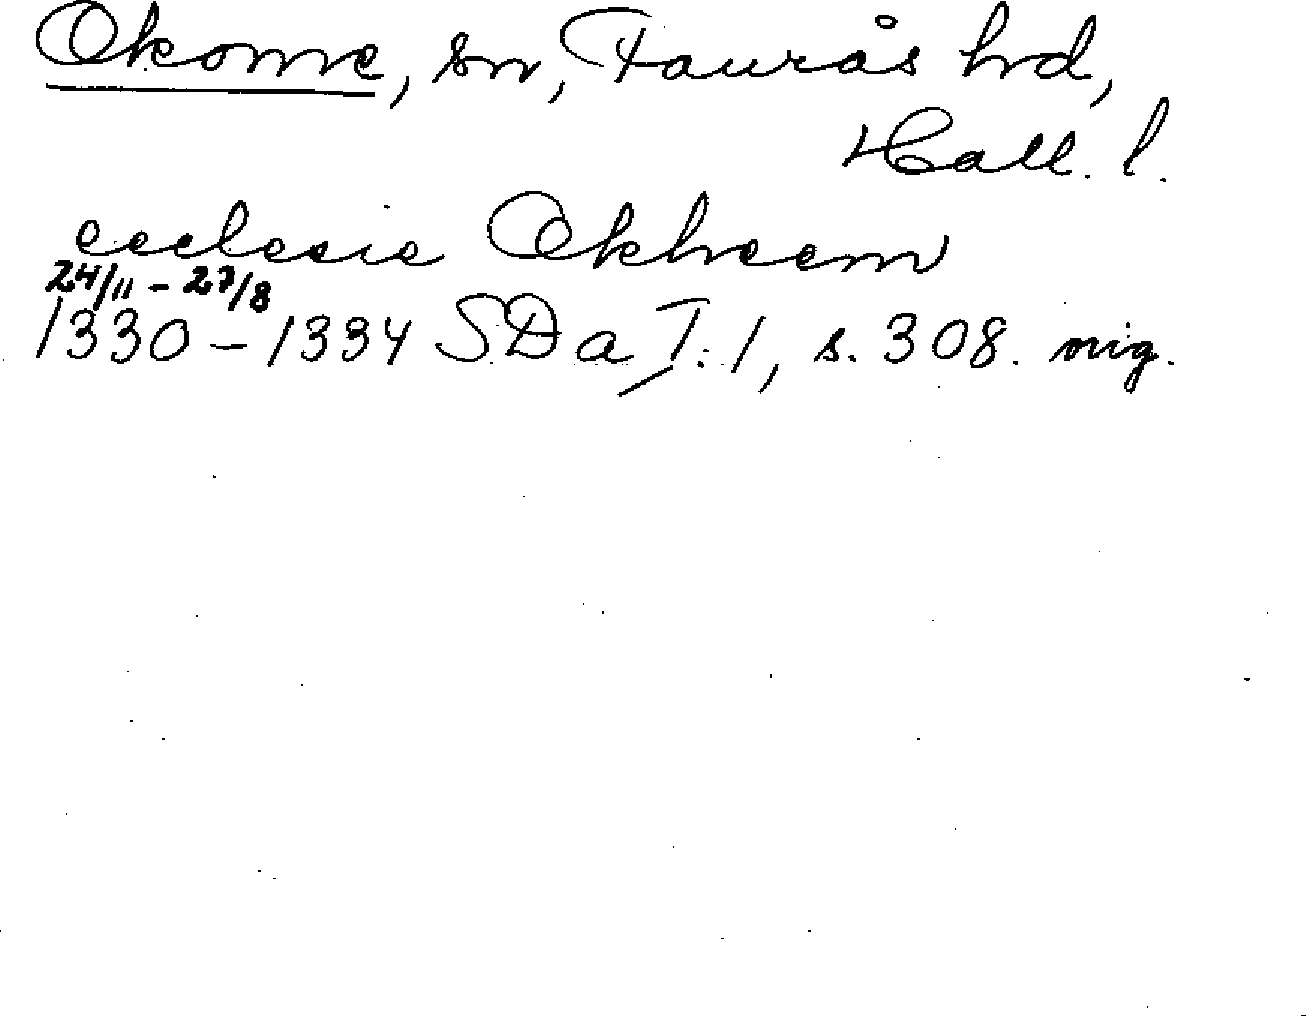 Okome, sn, Faurås hd,
Hall. l.
ecclesie Okheem
24/11 - 27/8
1330-1334 SD a T. 1, s. 308. orig.